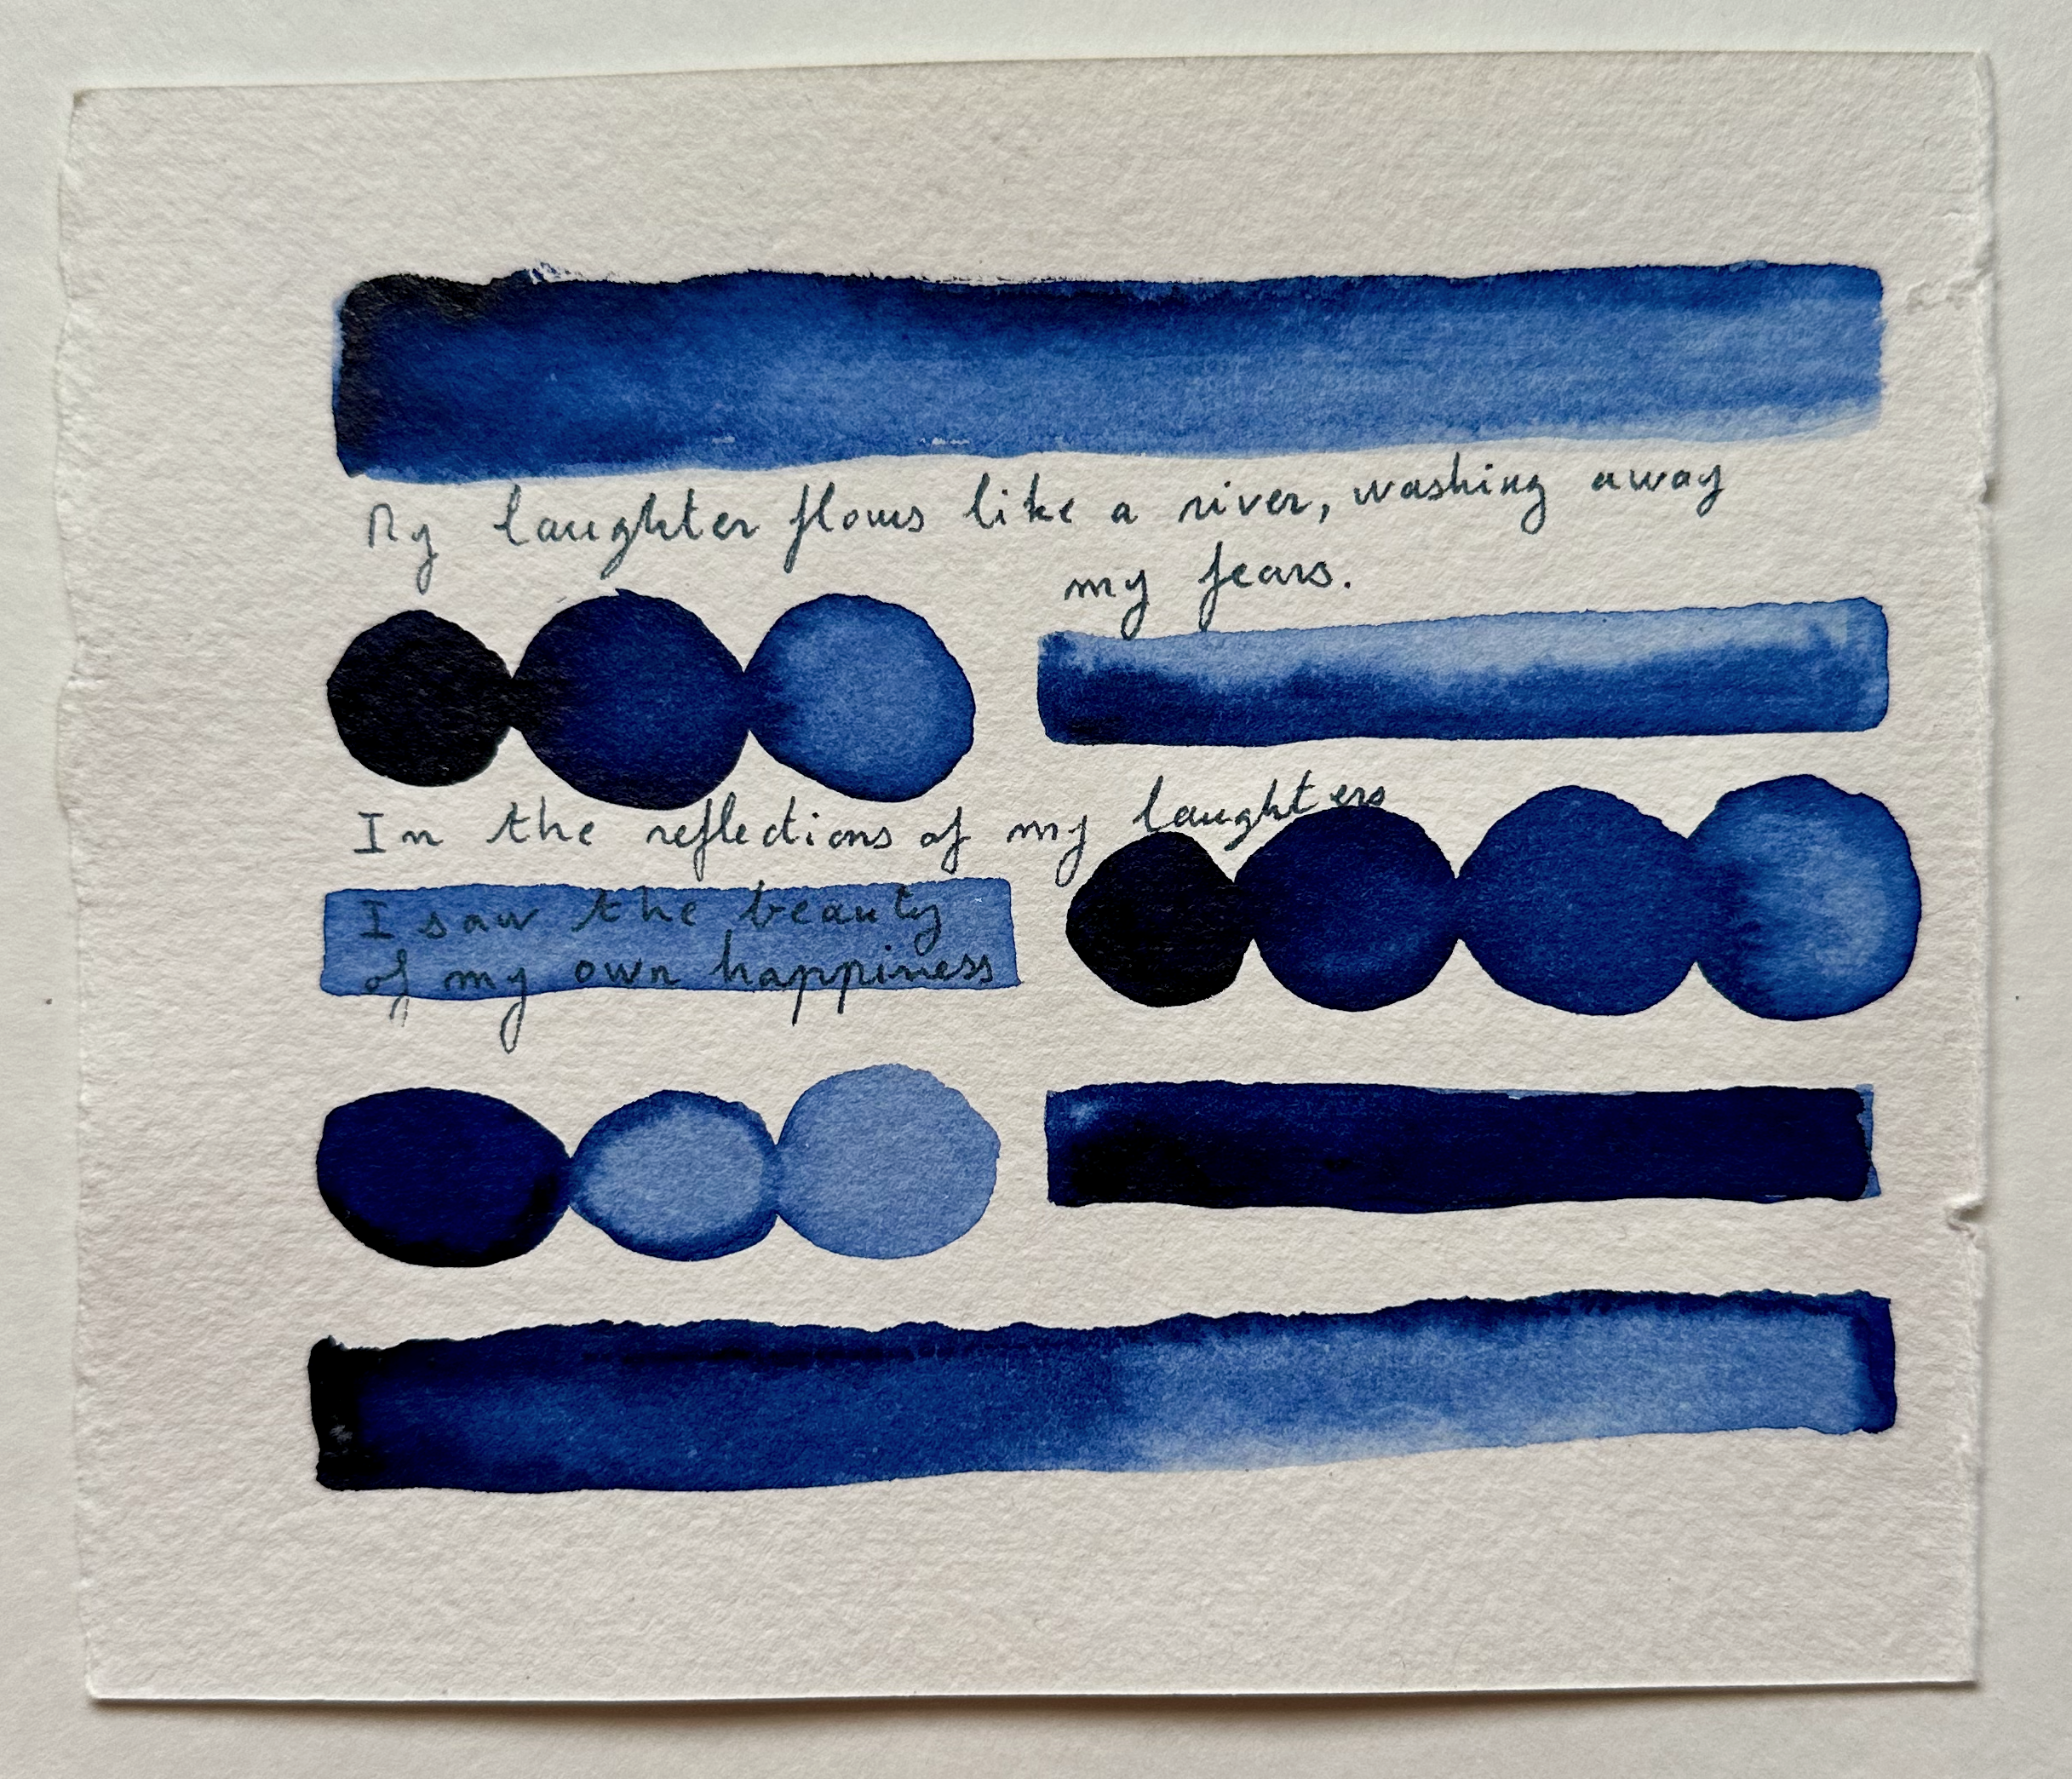 My laughter flows like a river, washing away
my fears.
In the reflections of my laughters
I saw the beauty
of my own happiness